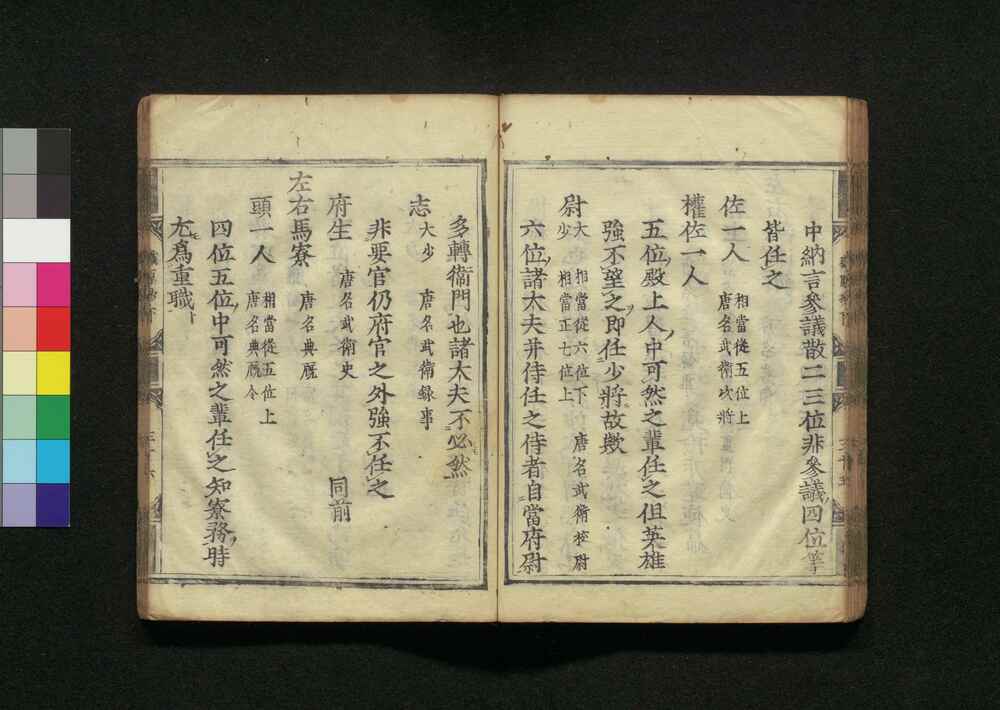 中納言參議散二三位非參議四位等
皆任之
佐一人 相當從五位上 唐名武衛次將
權佐一人
五位殿上人中可然之輩任之但英雄
強不望之即任少將故歟
尉 大 相當從六位下 少 相當正七位上 唐名武衛校尉
六位諸大夫并侍任之侍者自當府尉
多轉衞門也諸大夫不必然
志 大少 唐名武衛録事
非要官仍府官之外強不任之
府生 唐名武衛史 同前
左右馬寮 唐名典厩
頭一人 相當從五位上 唐名典厩令
四位五位中可然之輩任之知寮務時
尤爲重職